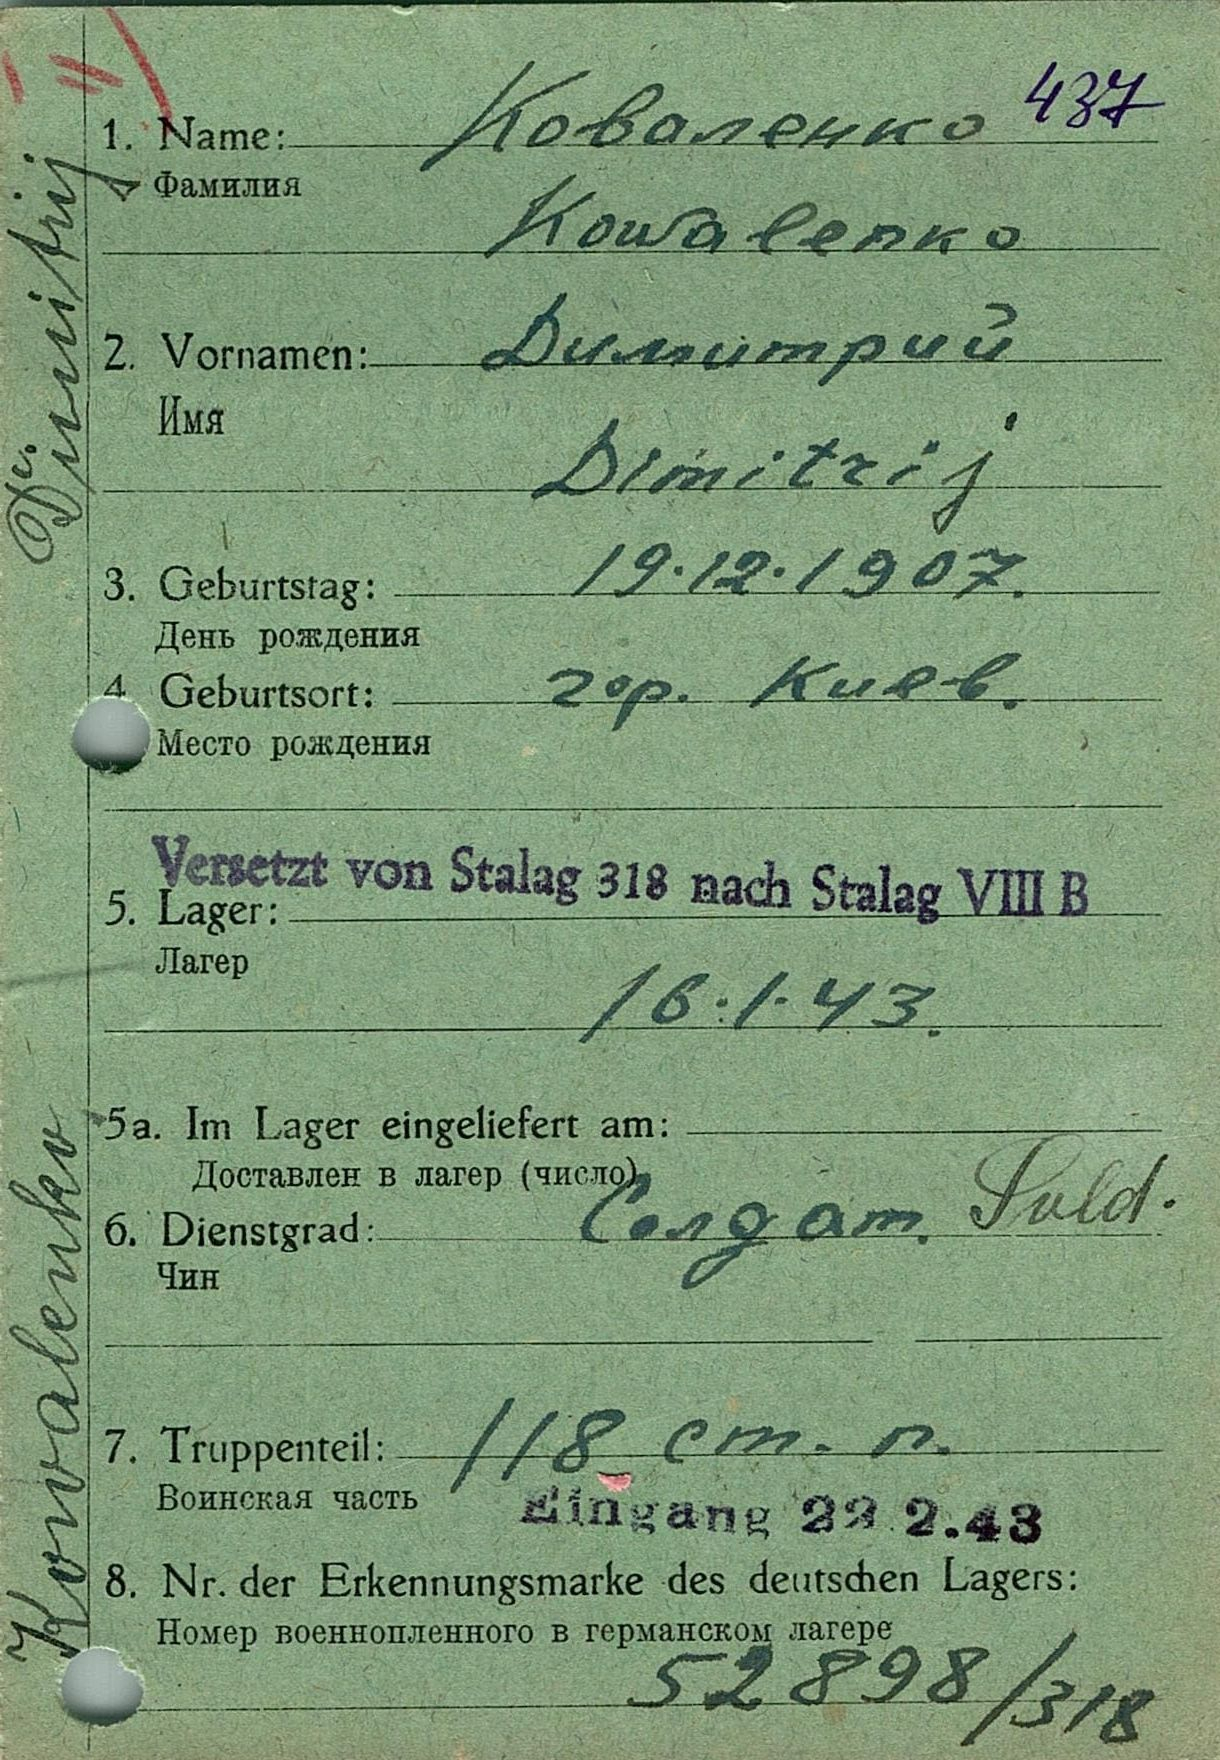 437
1. Name: Коваленко
Фамилия
Kowalenko
2. Vornamen: Димитрий
Имя
Dimitrij
3. Geburtstag: 19.12.1907.
День рождения
4 Geburtsort: гор. Киев.
Место рождения
Versetzt von Stalag 318 nach Stalag VIII B
5. Lager:
Лагер
16.1.43.
5a. Im Lager eingeliefert am:
Доставлен в лагер (число)
6. Dienstgrad: Солдат. Sold.
Чин
7. Truppenteil: 118 ст. п.
Воинская часть
Eingang 22 2.43
8. Nr. der Erkennungsmarke des deutschen Lagers:
Номер военнопленного в германском лагере
52898/318
Kowalenko Dimitrij